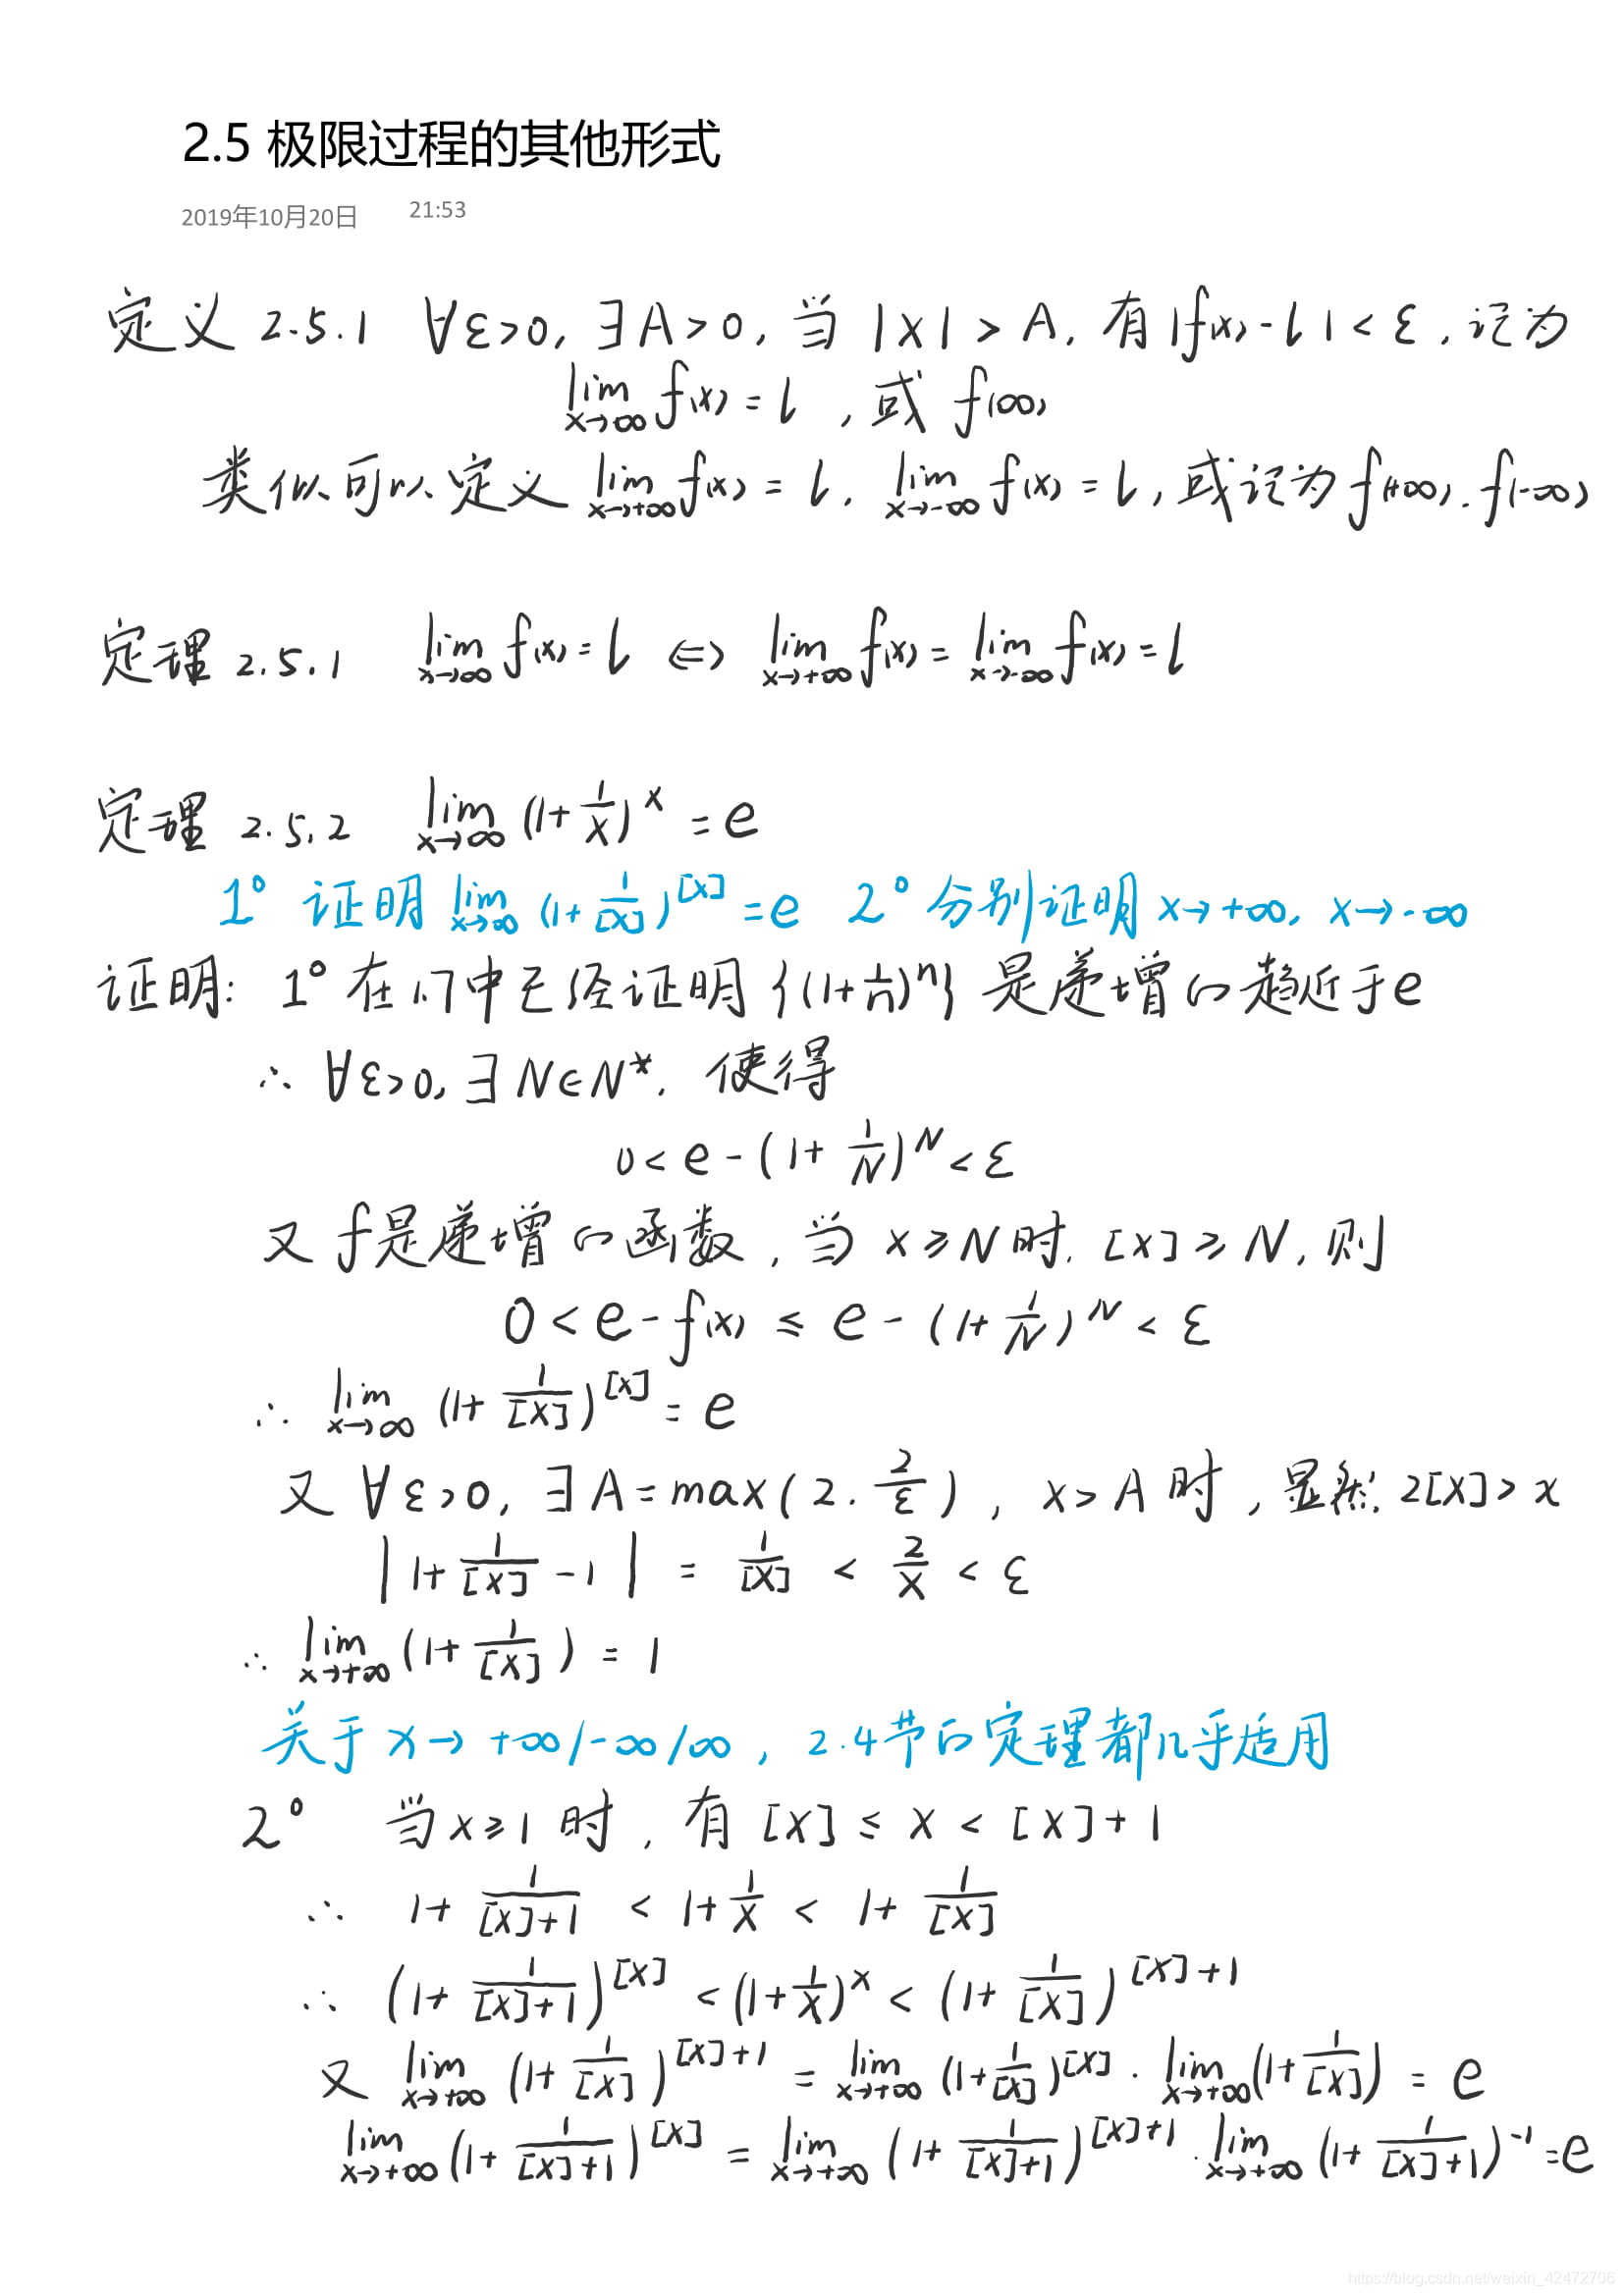 2.5 极限过程的其他形式
2019年10月20日 21:53
定义 2.5.1 ∀ε>0, ∃A>0, 当 |x|>A, 有|f(x)-l|<ε, 记为
lim_{x→∞} f(x) = l , 或 f(∞)
类似可以定义 lim_{x→+∞} f(x) = l, lim_{x→-∞} f(x) = l, 或记为 f(+∞), f(-∞)
定理 2.5.1 lim_{x→∞} f(x) = l ⇔ lim_{x→+∞} f(x) = lim_{x→-∞} f(x) = l
定理 2.5.2 lim_{x→∞} (1+1/x)^x = e
1° 证明 lim_{x→∞} (1+1/[x])^{[x]} = e 2° 分别证明 x→+∞, x→-∞
证明: 1° 在1.7中已经证明 {(1+1/n)^n} 是递增的趋近于e
∴ ∀ε>0, ∃N∈N*, 使得
0 < e - (1+1/N)^N < ε
又 f是递增的函数, 当 x≥N 时, [x]≥N, 则
0 < e - f(x) ≤ e - (1+1/N)^N < ε
∴ lim_{x→∞} (1+1/[x])^{[x]} = e
又 ∀ε>0, ∃A = max(2, 2/ε), x>A 时, 显然, 2[x]>x
|1+1/[x]-1| = 1/[x] < 2/x < ε
∴ lim_{x→+∞} (1+1/[x]) = 1
关于 x→ +∞/-∞/∞, 2.4节的定理都几乎适用
2° 当x≥1 时, 有 [x] ≤ x < [x]+1
∴ 1+1/([x]+1) < 1+1/x < 1+1/[x]
∴ (1+1/([x]+1))^{[x]} < (1+1/x)^x < (1+1/[x])^{[x]+1}
又 lim_{x→+∞} (1+1/[x])^{[x]+1} = lim_{x→+∞} (1+1/[x])^{[x]} · lim_{x→+∞} (1+1/[x]) = e
lim_{x→+∞} (1+1/([x]+1))^{[x]} = lim_{x→+∞} (1+1/([x]+1))^{[x]+1} · lim_{x→+∞} (1+1/([x]+1))^{-1} = e
https://blog.csdn.net/weixin_42472706